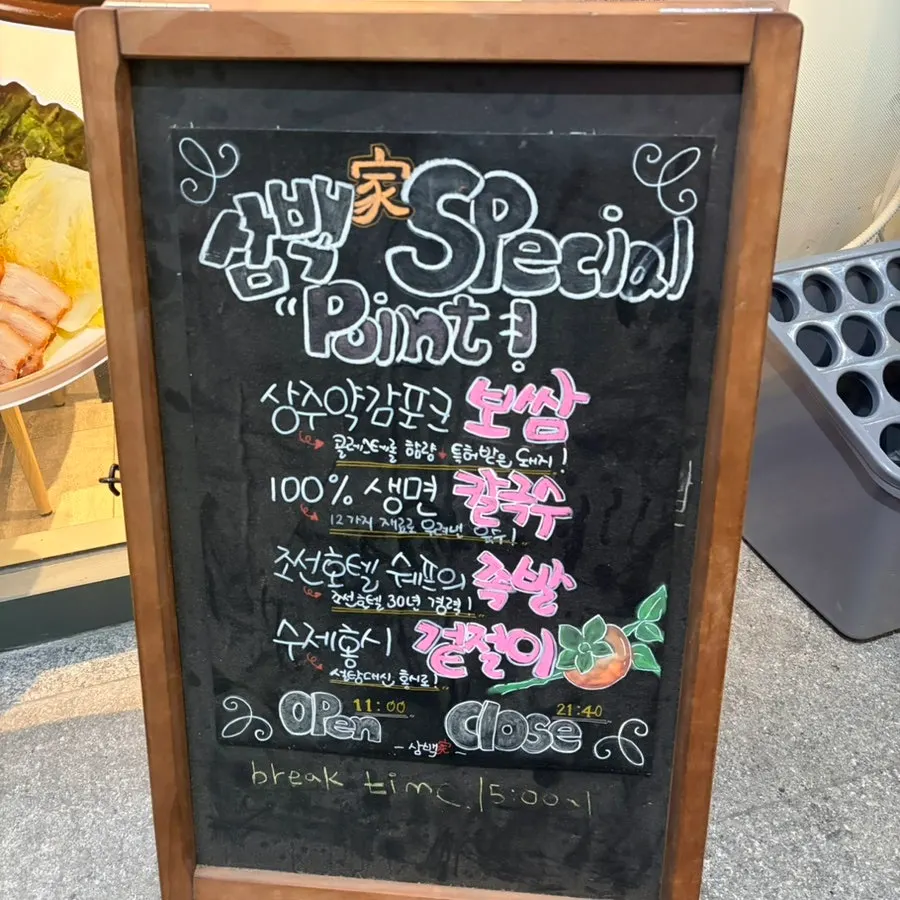 삼백家 Special
"Point!
상주약감포크 보쌈
콜레스테롤 함량↓ 특허받은 돼지!
100% 생면 칼국수
12가지 재료로 우려낸 육수!
조선호텔 쉐프의 족발
조선호텔 30년 경력!
수제홍시 겉절이
설탕대신 홍시로!
OPen 11:00 Close 21:40
- 삼백家 -
break time 15:00